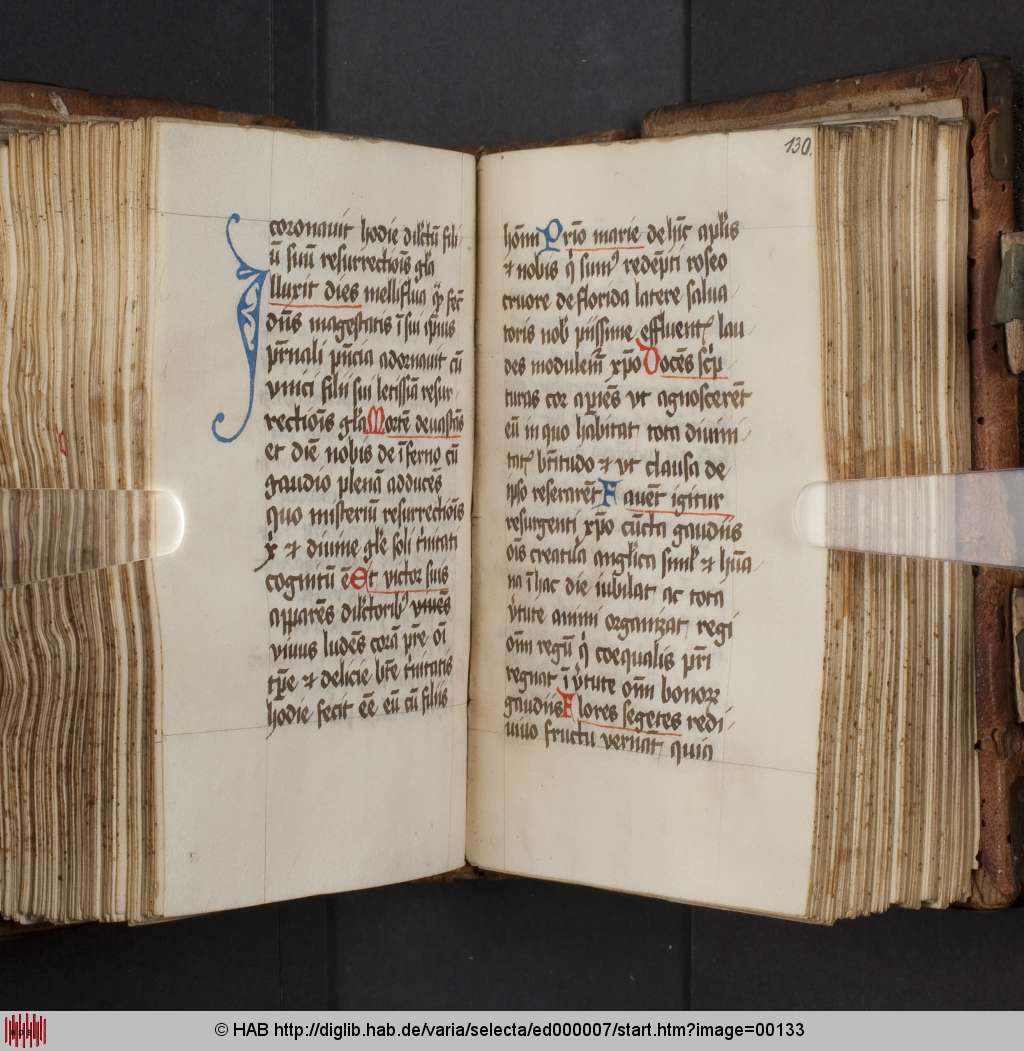 coronauit hodie dilc̄tū fili
ū suū resurrectiōis gl̄a
Illuxit dies melliflua qn̄ fec̄
dn̄s magestatis ī sui ip̄ius
p̄rnali p̄ncia adornauit cū
vnici filii sui letissīa resur
rectiōis gl̄a Mortē deuastās
et diē nobis de īferno cū
gaudio plenā adducēs
quo misteriū resurrectiōis
x̄ et diuine gl̄e soli t̄nitati
cognitū ē Et victor suis
apparēs dilc̄toribꝰ viuēs
viuus ludēs corā p̄re oī
tp̄e et delicie bt̄e t̄nitatis
hodie fecit eē eū cū filiis
130.
hōīm Prīo marie dehīc apl̄is
et nobis q̄ sumꝰ redēpti roseo
cruore de florida latere salua
toris nob̄ piissime effluent̄ lau
des modulem̄ xp̄o Docēs sc̄p
turas cor apiēs vt agnoscerēt
eū in quo habitat tota diuini
tat̄ bt̄itudo et vt clausa de
ipso reserarēt Fauēt igitur
resurgenti xp̄o cūcta gaudiis
oīs creatura angl̄ica simil̄ et hūa
na ī hac die iubilat ac tota
v̄tute animi organizat regi
oīm regū q̄ coequalis p̄ri
regnat ī v̄tute oīm bonoꝝ
gaudiis Flores segetes redi
uiuo fructu vernāt quia
© HAB http://diglib.hab.de/varia/selecta/ed000007/start.htm?image=00133